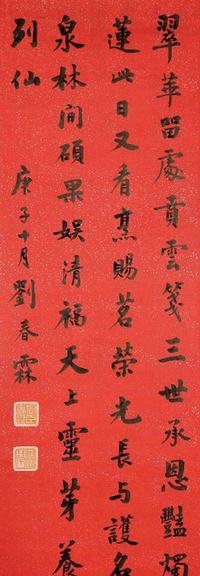 翠華留處貢雲箋三世承恩豔燭
蓮此日又看烹賜茗榮光長与護名
泉林間碩果娱清福天上靈芽養
列仙
庚子十月劉春霖